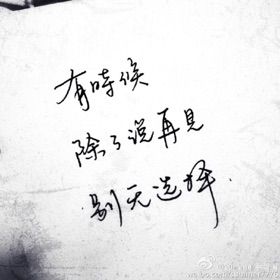 有時候
除了说再見
别无选择